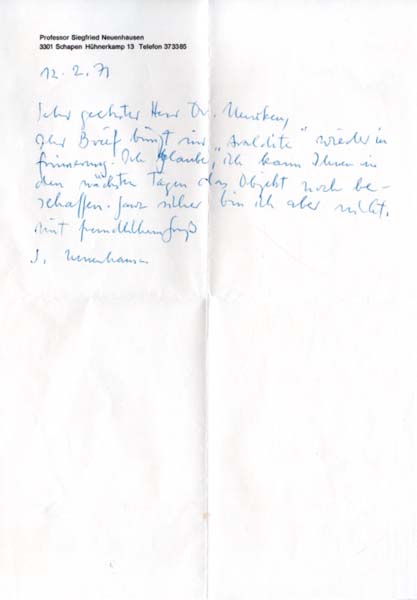 Professor Siegfried Neuenhausen
3301 Schapen Hühnerkamp 13 Telefon 373385
12. 2. 71
Sehr geehrter Herr Dr.
Ihr Brief bringt mir „Araldite" wieder in
Erinnerung. Ich glaube, ich kann Ihnen in
den nächsten Tagen das Objekt noch be-
schaffen. Ganz sicher bin ich aber nicht.
mit freundlichem Gruß
S. Neuenhausen